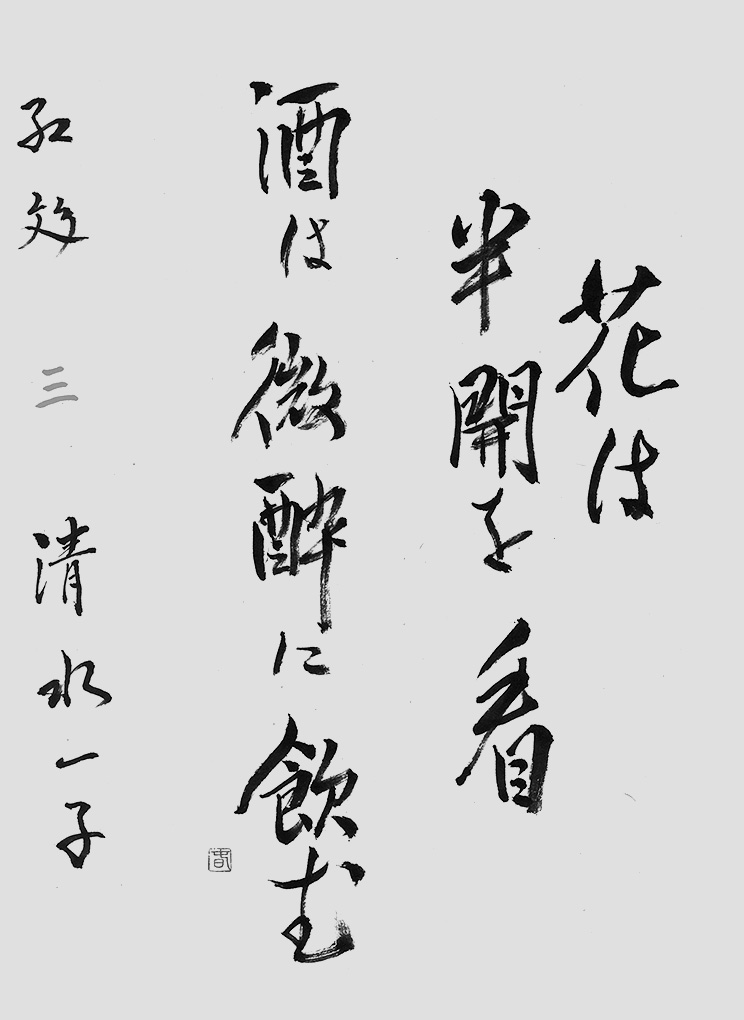 花は
半開を看
酒は微酔に飲む
三 清水一子